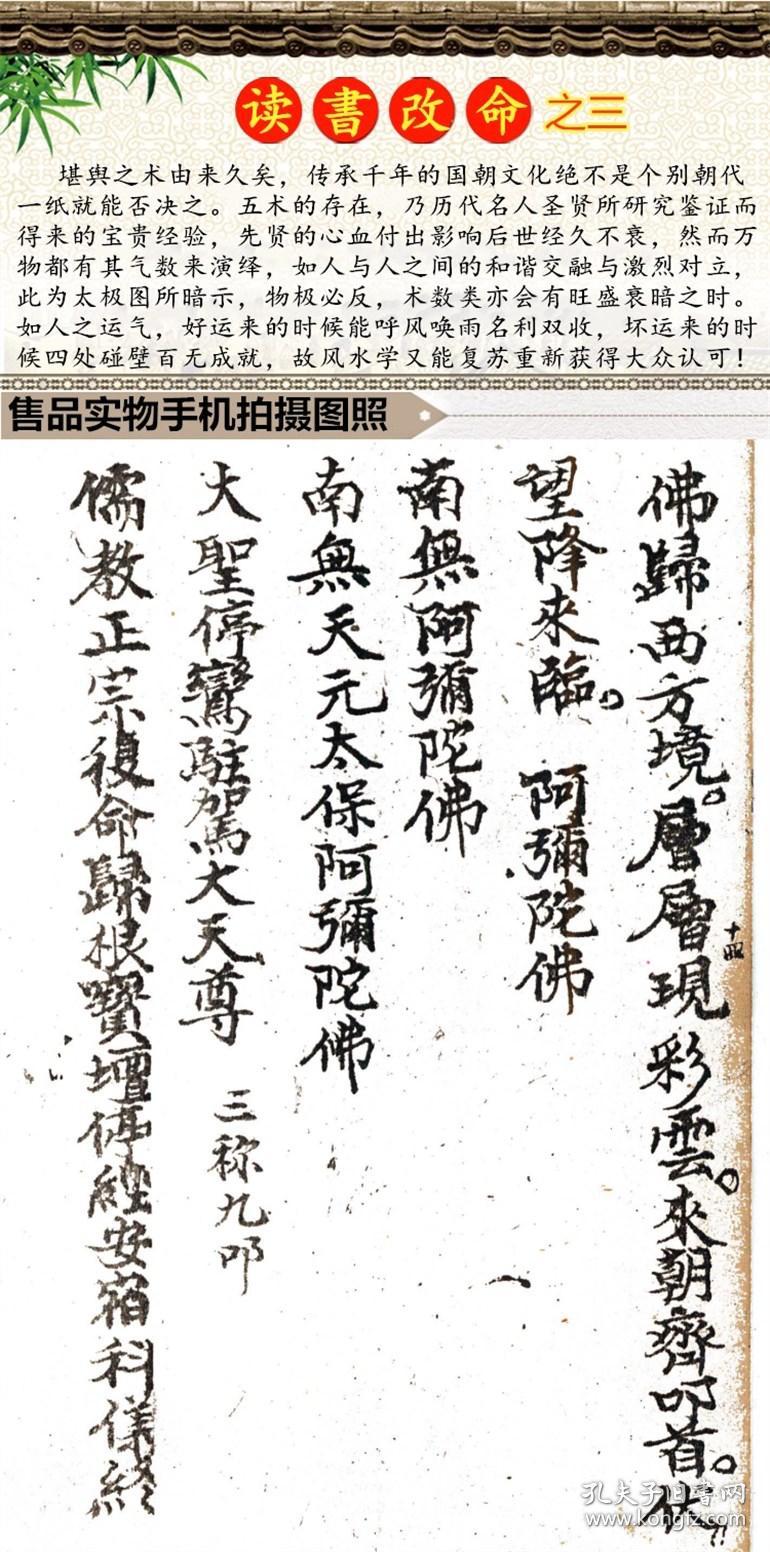 读書改命之三
堪舆之术由来久矣，传承千年的国朝文化绝不是个别朝代
一纸就能否决之。五术的存在，乃历代名人圣贤所研究鉴证而
得来的宝贵经验，先贤的心血付出影响后世经久不衰，然而万
物都有其气数来演绎，如人与人之间的和谐交融与激烈对立，
此为太极图所暗示，物极必反，术数类亦会有旺盛衰暗之时。
如人之运气，好运来的时候能呼风唤雨名利双收，坏运来的时
候四处碰壁百无成就，故风水学又能复苏重新获得大众认可！
售品实物手机拍摄图照
佛歸西方境。層層現彩雲。來朝齊叩首。伏
十四
望降來臨。阿彌陀佛
南無阿彌陀佛
南無天元太保阿彌陀佛
大聖停鸞駐駕大天尊 三称九叩
儒教正宗復命歸根寶壇停經安宿科儀終
孔夫子旧书网
www.kongfz.com